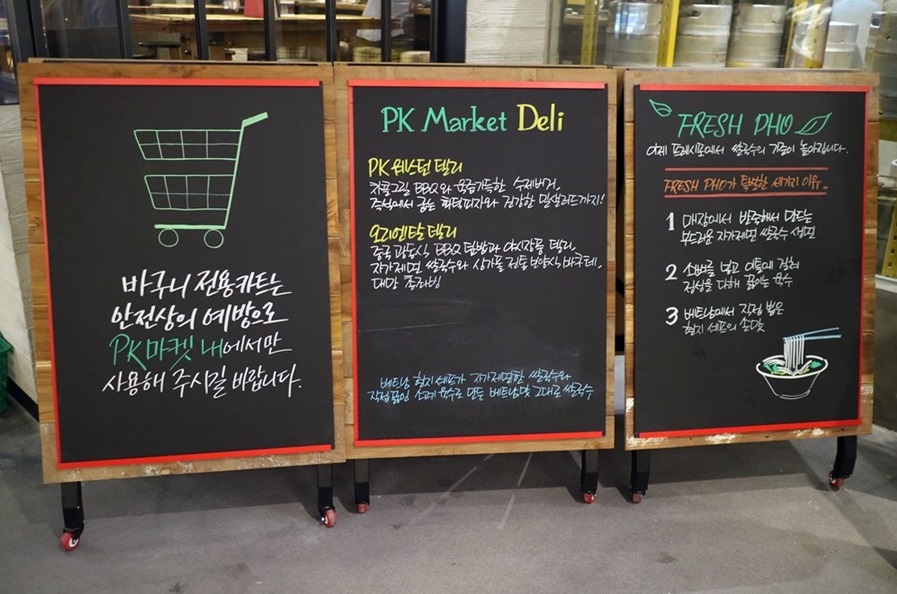 바구니 전용카트는
안전상의 예방으로
PK마켓 내에서만
사용해 주시길 바랍니다.
PK Market Deli
PK 웨스턴 델리
참숯그릴 BBQ와 육즙가득한 수제버거,
즉석에서 굽는 화덕피자와 건강한 밀샐러드까지!
오리엔탈 델리
중국 광동식 BBQ 덮밥과 야시장풍 델리,
자가제면 쌀국수와 삼가를 전통 보양식 바쿠테,
대만 족과빙
베트남 현지 셰프가 자가제면한 쌀국수와
직접끓인 소뼈 육수로 만든 베트남맛 그대로 쌀국수
FRESH PHO
이제 프레시포에서 쌀국수의 기준이 높아집니다.
FRESH PHO가 특별한 세가지 이유..
1 매장에서 반죽해서 만드는
부드러운 자가제면 쌀국수 생면
2 소뼈를 넣고 이틀에 걸쳐
정성을 다해 끓이는 육수
3 베트남에서 직접 뽑은
현지 셰프의 손맛